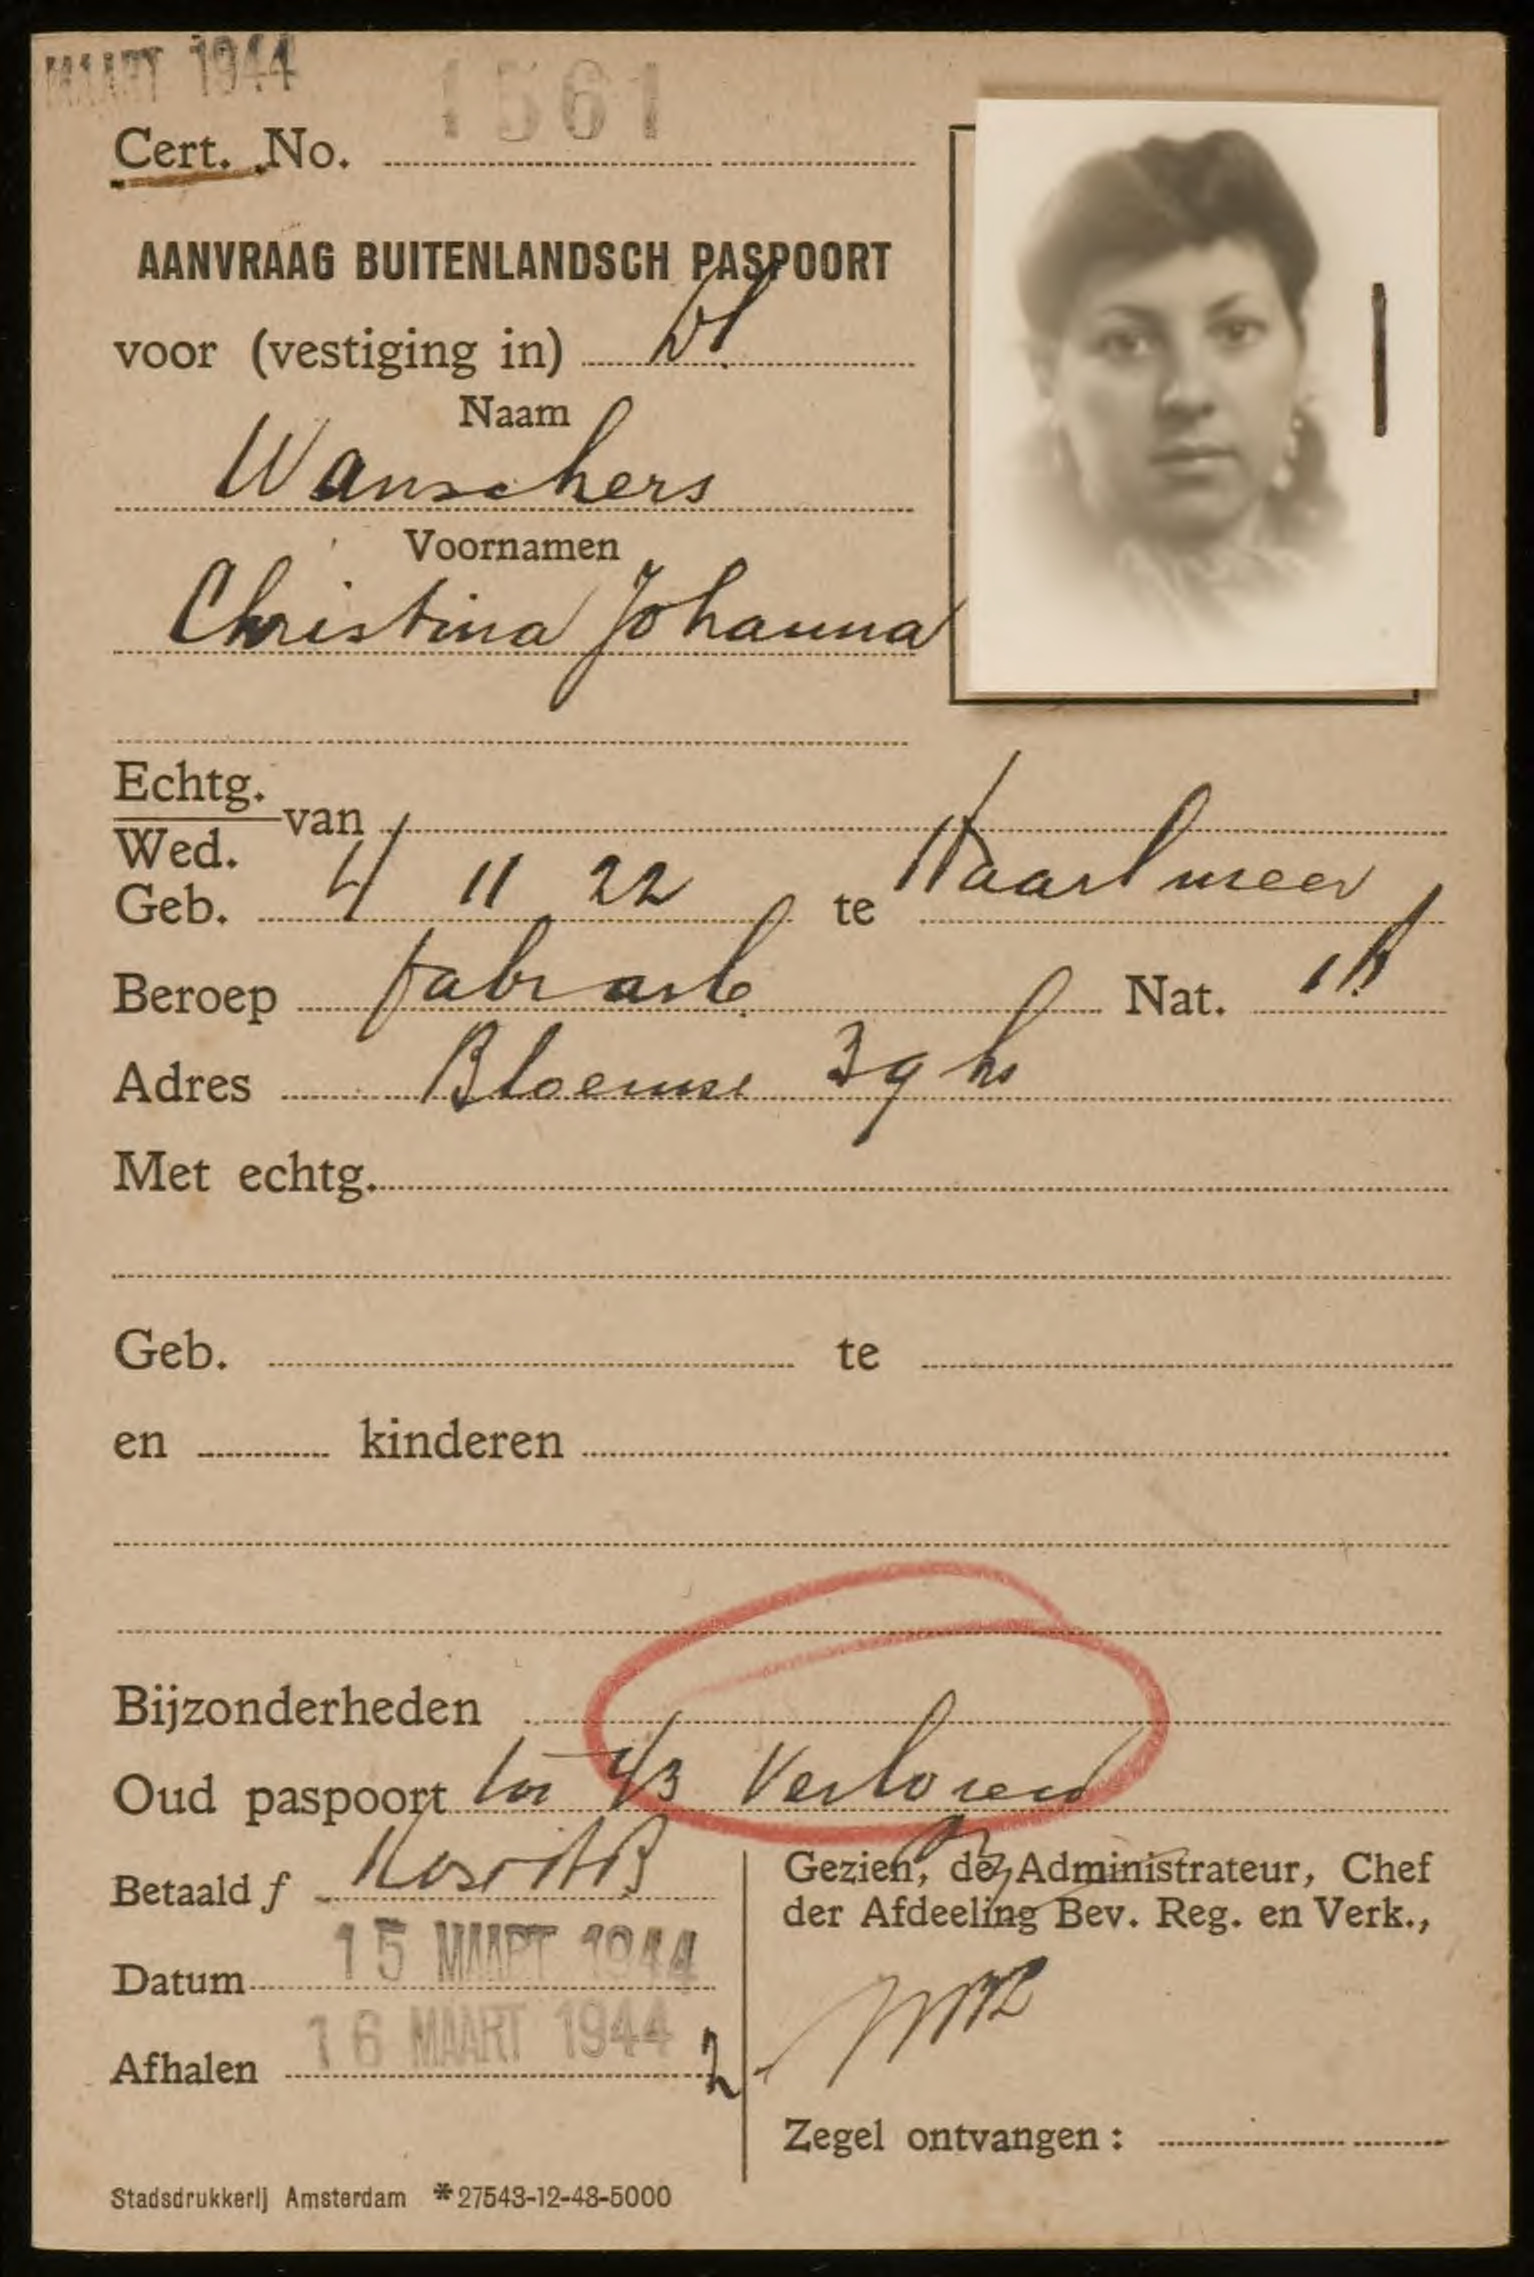 MAART 1944
1561
Cert. No.
AANVRAAG BUITENLANDSCH PASPOORT
voor (vestiging in) Dl
Naam
Wanschers
Voornamen
Christina Johanna
Echtg.
van
Wed.
Geb. 4 11 22 te Haarlmeer
Beroep fabr arb. Nat.
Adres Bloemse 39 hs
Met echtg.
Geb. te
en kinderen
Bijzonderheden
Oud paspoort 4/3 Verloren
Betaald f
Datum 15 MAART 1944
Afhalen 16 MAART 1944
Gezien, de Administrateur, Chef
der Afdeeling Bev. Reg. en Verk.,
Zegel ontvangen :
Stadsdrukkerij Amsterdam *27543-12-43-5000